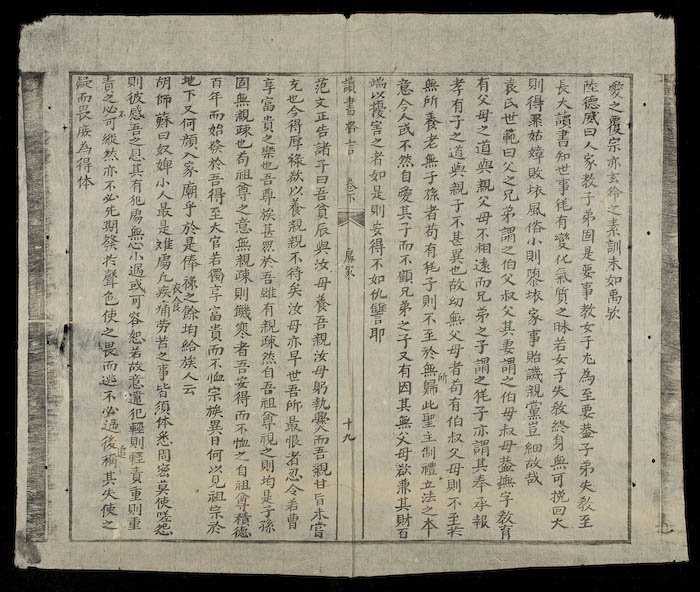 愛之覆宗亦玄之素訓未如禹欤
陸德威曰人家教子弟固是要事教女子尤為至要蓋子弟失教至
長大讀書知世事有變化氣質之昧若女子失教終身無可挽回大
則得罪姑嫜敗壊風俗小則隳壊家事貽譏親黨豈細故哉
袁氏世範曰父之兄弟謂之伯父叔父其妻謂之伯母叔母葢撫字教育
有父母之道與親父母不相遠而兄弟之子謂之子亦謂其奉承報
孝有子之道與親子不甚異也故幼無父母者苟有伯叔父母則不至
無所養老無子孫者苟有子則不至於無所歸此聖主制禮立法之本
意今人或不然自愛其子而不顧兄弟之子又有因其無父母欲兼其財百
端以擾害之者如是則安得不如仇讐耶
讀書畧言 卷下 居家 十九
范文正告諸子曰吾貧辰與汝母養吾親汝母躬執爨而吾親甘旨未嘗
充也今得厚祿欲以養親親不待矣汝母亦早世吾所最恨者忍令若曹
享富貴之樂也吾尊族甚眾於吾雖有親疎然自吾祖尊視之則均是子孫
固無親疎也苟祖尊之意無親疎則饑寒者吾安得而不恤之自祖尊積德
百年而始發於吾得至大官若獨享富貴而不恤宗族異日何以見祖宗於
地下又何顏入家廟乎於是俸祿之餘均給族人云
胡師蘇曰奴婢小人最是难處凡衣食疾痛劳苦之事皆須体悉周密莫使嗟怨
則彼感吾之恩其有犯處無心小過或可容恕若故意違犯輕則輕責重則重
責之必不可縱然亦不必先期發於聲色使之畏而逃不必過後追稱其失使之
疑而畏庻為得体